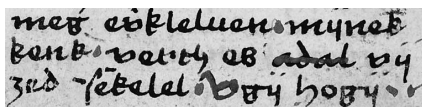 meg eskleluen · mynek
kenk · verth es adal vy
zed · sekelel · vgy hogy ·